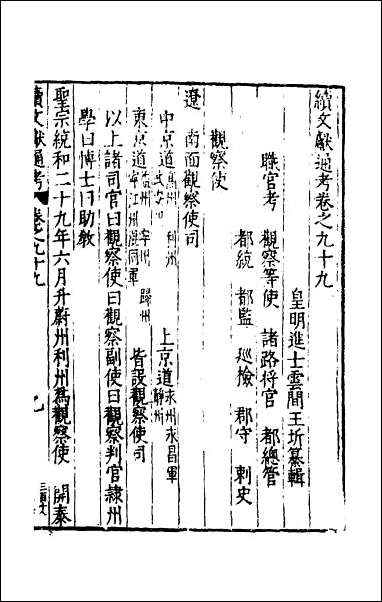 續文獻通考卷之九十九
皇明進士雲間王圻纂輯
職官考 觀察等使 諸路將官 都總管
都統 都監 巡檢 郡守 刺史
觀察使
遼 南面觀察使司
中京道高州 利州 上京道永州永昌軍 靜州
東京道益州 寧州 歸州 寧江州混同軍 皆設觀察使司
以上諸司官曰觀察使曰觀察副使曰觀察判官隷州
學曰博士曰助教
聖宗統和二十九年六月升蔚州利州爲觀察使 開泰
續文獻通考 卷之九十九